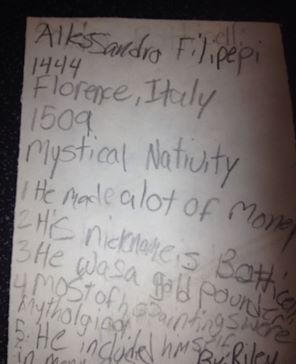 Alkssandro Filipepi
1444
Florence, Italy
1509
Mystical Nativity
1 He made alot of money
2 His nickname is Botticelli
3 He was a gold pounder
4 most of his paintings were
mythological
5. He included himself
in many By: Riley